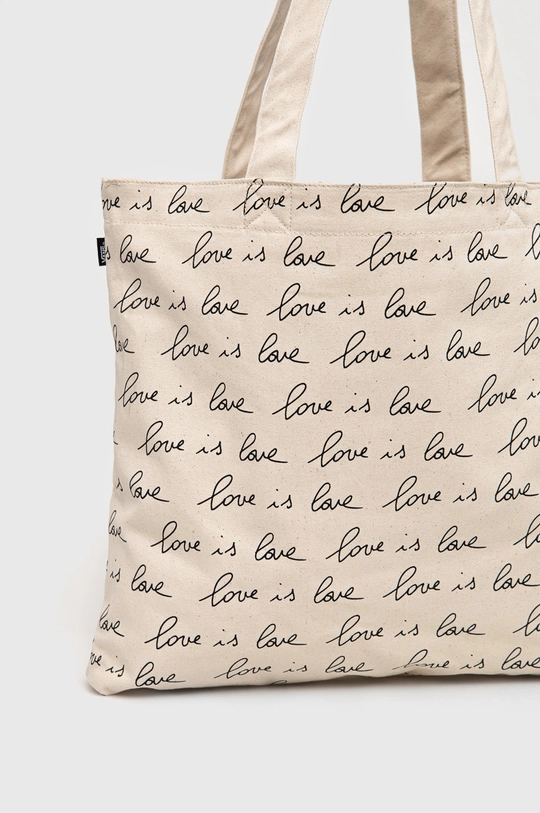 ve is love love is love love is love
s love love is love love is love l
love is love love is love love is l
love love is love love is love lo
love is love love is love love is
love is love love is love lov
s love love is love love is love
love love is love love is love lo
is love love is love love is love
love love is love love is love l
ve is love love is love love is love